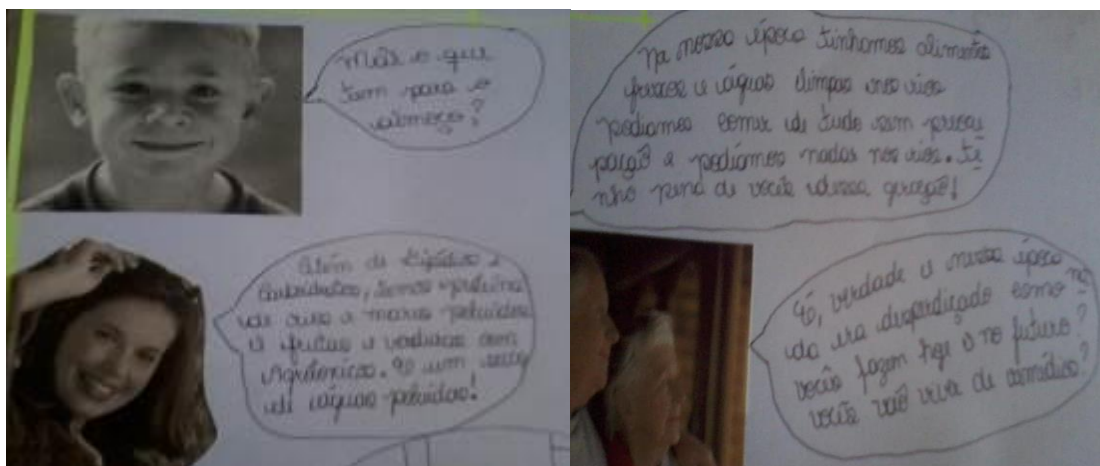 Mãe o que
tem para o
almoço?
Além de lipídios e
Carboidratos, temos proteína
de rios e mares poluídos
e frutas e verduras com
Agrotóxicos. E um suco
de águas poluídas!
Na nossa época tinhamos alimentos
frescos e águas limpas nos rios
podiamos comer de tudo sem preocu
pação e podíamos nadar nos rios. Te
nho pena de vocês dessa geração!
É, verdade e nessa época na
da era disperdiçado como
vocês fazem hoje e no futuro?
vocês vão viver de remédios?